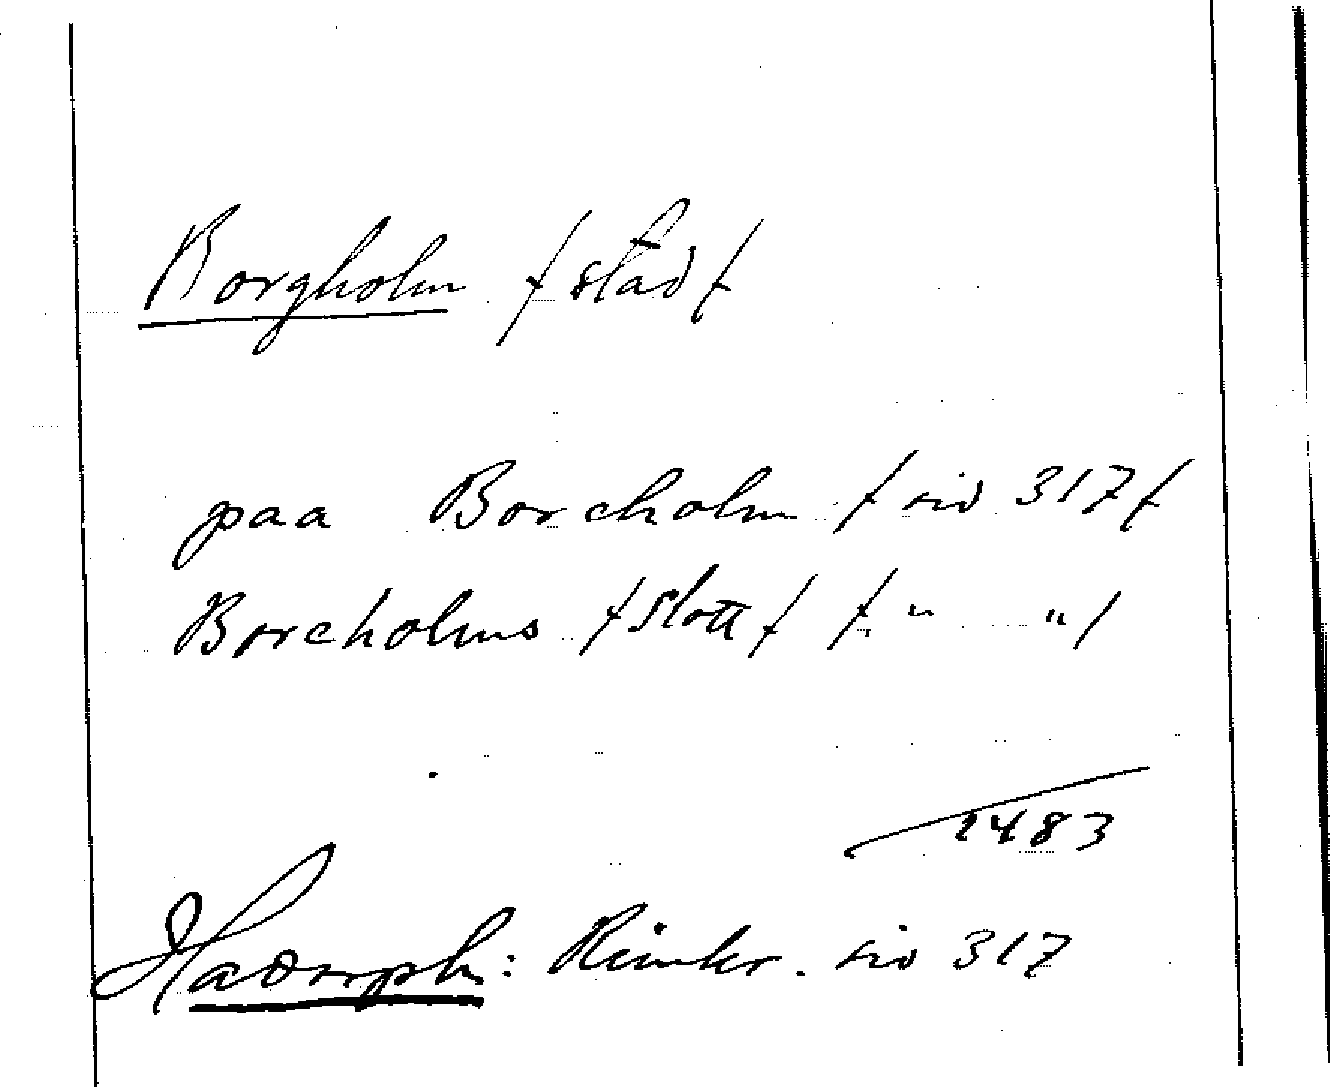 Borgholm /stad/
paa Borcholm /sid 317/
Borcholms /slott/ /" "/
1483
Hadorph: Rimkr. sid 317